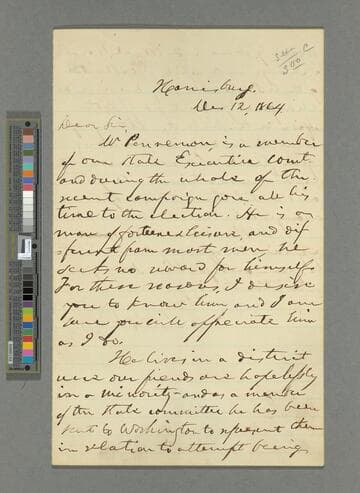 Harrisburg.
Dec 12, 1864
Dear Sir,
Mr is a member
of our State Executive Comt.
and during the whole of the
recent campaign gave all his
time to the election. He is a
man of fortune & leisure, and dif
-ferent from most men he
seeks no reward for himself
For these reasons, I desire
you to know him and I am
sure you will appreciate him
as I do.
He lives in a district
were our friends are hopelessly
in a minority - and as a member
of the State committee he has been
sent to Washington to represent them
in relation to attempt being